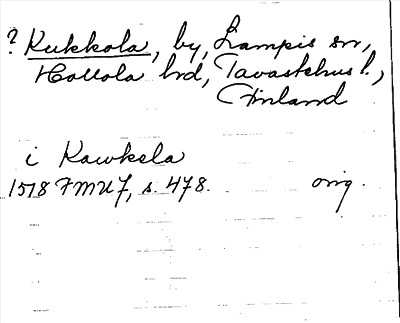 ? Kukkola, by, Lampis sn,
Hollola hrd, Tavastehus l.,
Finland
i Kawkela
1518 FMU 7, s. 478. orig.